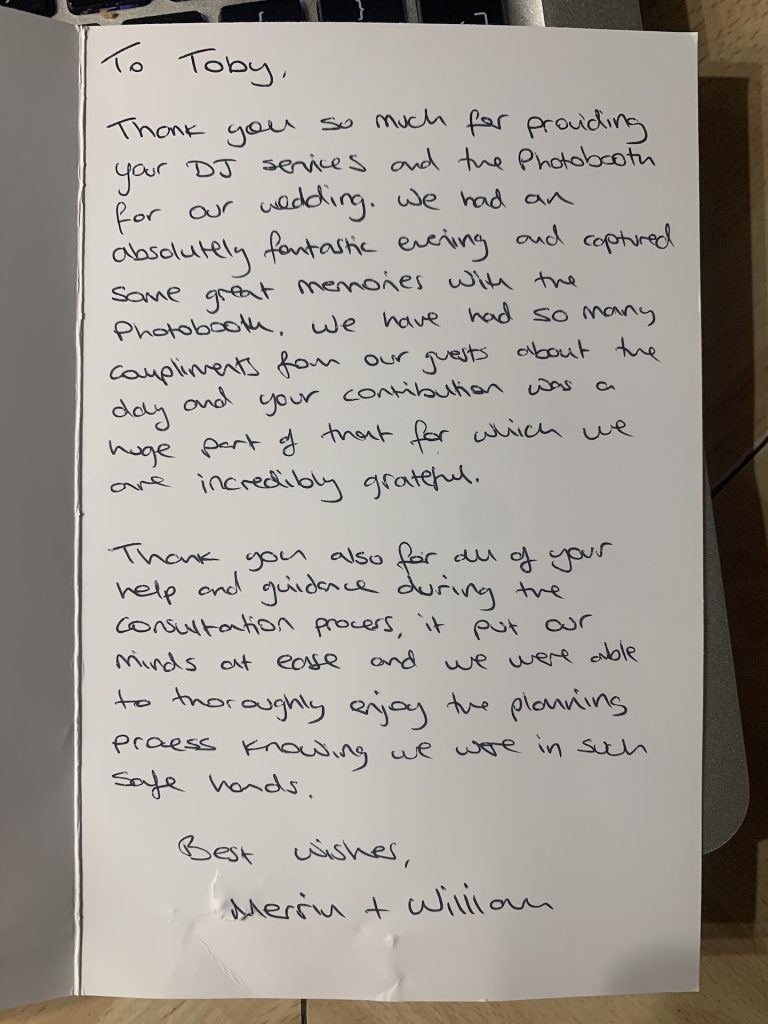 To Toby,
Thank you so much for providing
your DJ services and the Photobooth
for our wedding. We had an
absolutely fantastic evening and captured
some great memories with the
Photobooth. We have had so many
compliments from our guests about the
day and your contibution was a
huge part of that for which we
are incredibly grateful.
Thank you also for all of your
help and guidance during the
consultation process, it put our
minds at ease and we were able
to thoroughly enjoy the planning
process knowing we were in such
safe hands.
Best wishes,
Merrin + William